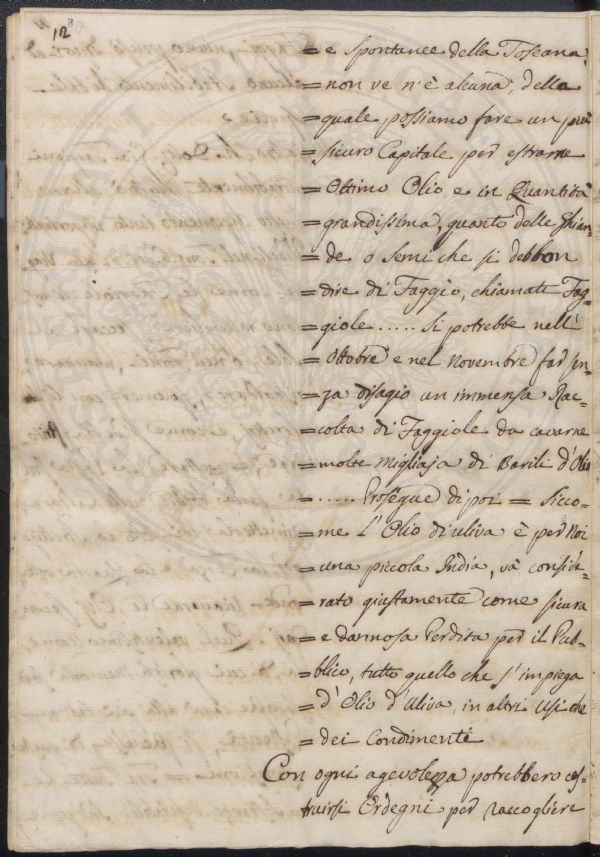 12
= e spontanee della Toscana,
= non ve n'è alcuna, della
= quale possiamo fare un più
= sicuro Capitale per estrarne
= Ottimo Olio e in Quantità
= grandissima, quanto delle Ghian-
= de o semi che si debbon
= dire di Faggio, chiamate Fag-
= giole ..... Si potrebbe nell'
= Ottobre e nel Novembre far sen-
= za disagio un immensa Rac-
= colta di Faggiole da cavarne
= molte migliaja di Barili d'Olio
= ..... Prosegue di poi = Sicco-
= me l'Olio d'uliva è per Noi
= una piccola India, và conside-
= rato giustamente come sicura
= e dannosa Perdita per il Pub-
= blico, tutto quello che s'impiega
= d'Olio d'Uliva, in altri Usi che
= dei Condimenti
Con ogni agevolezza potrebbero cos-
truirsi Ordegni per raccogliere